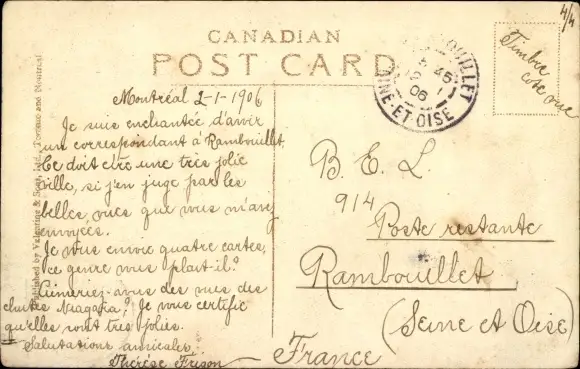 4/4
CANADIAN
POST CARD
RAMBOUILLET
SEINE-ET-OISE
06
Timbre
côté vue
Montréal 2-1-1906
Je suis enchantée d'avoir
un correspondant à Rambouillet
Ce doit être une très jolie
ville, si j'en juge par les
belles vues que vous m'avez
envoyées.
Je vous envoie quatre cartes,
ce genre vous plait-il?
Aimeriez-vous des vues des
chutes Niagara? Je vous certifie
qu'elles sont très jolies.
Salutations amicales
Thérèse Frison
B. E. L.
914
Poste restante
Rambouillet
(Seine et Oise)
France
Published by Valentine & Sons, Ltd., Toronto and Montreal